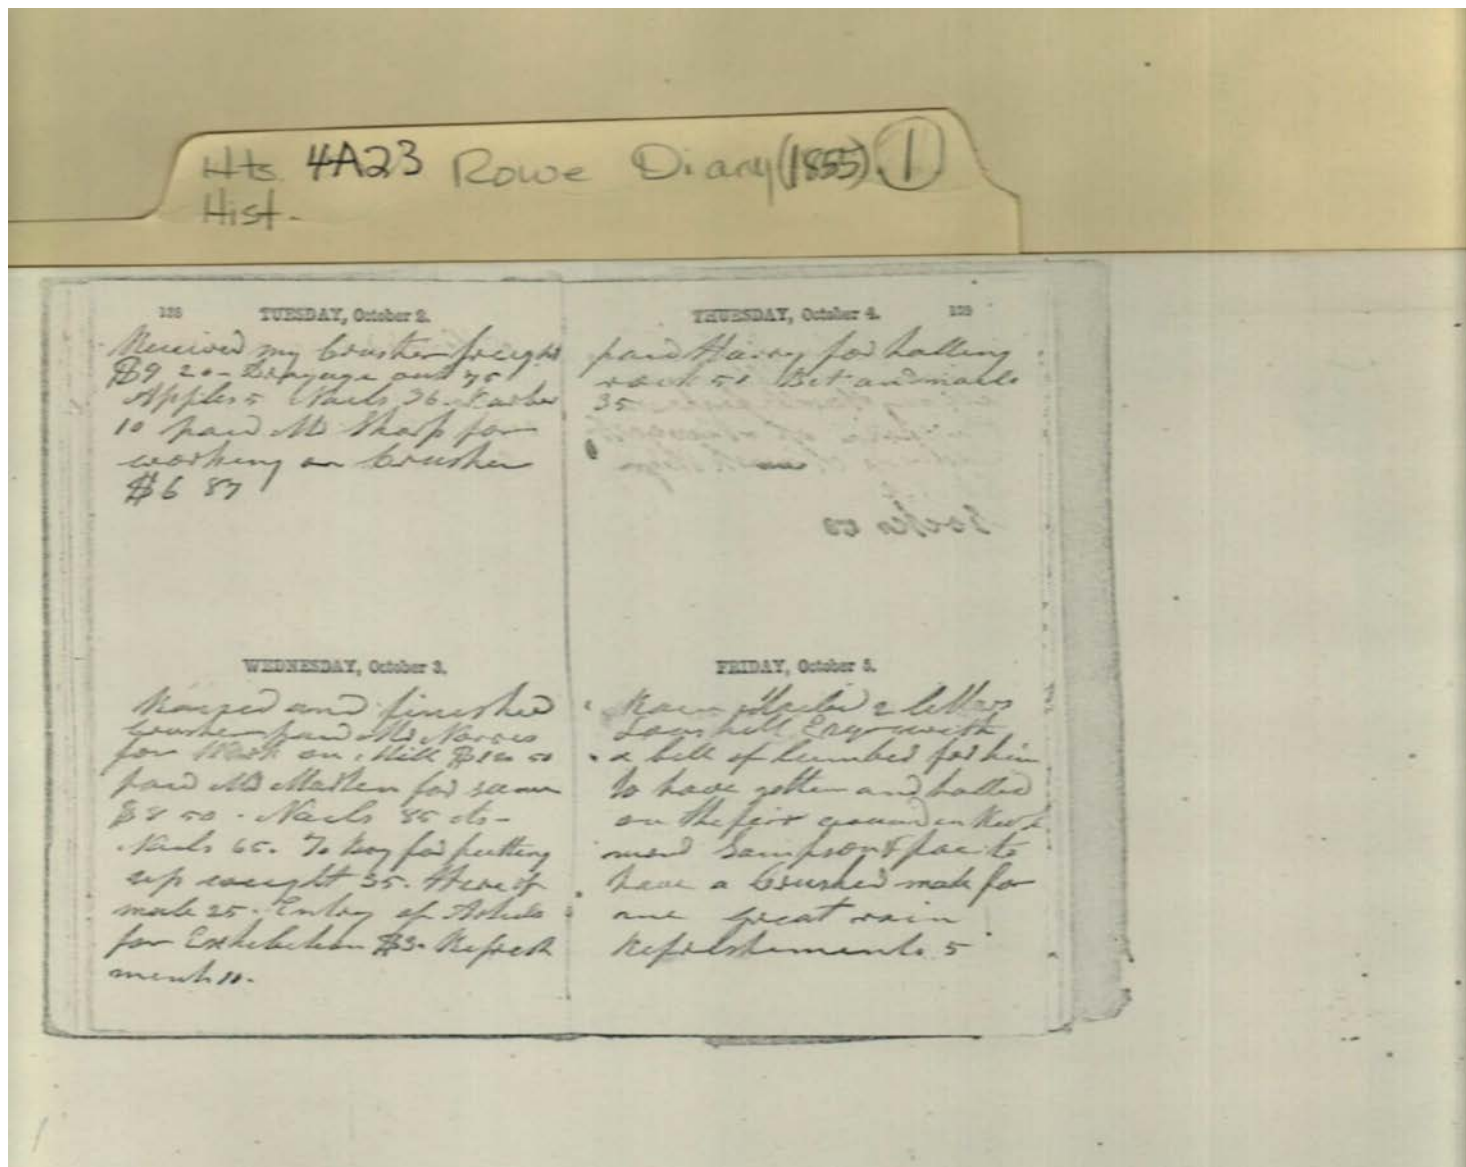 Hts. 4A23 Rowe Diary (1855) 1
Hist.
138 TUESDAY, October 2.
Received my Crusher freight
$9 20 - Drayage out 75
Apples 5 Nails 36.
10 paid Mr Sharp for
working on Crusher
$6 87
WEDNESDAY, October 3.
and finished
Crusher paid Mr Norris
for Work on Mill 50
paid Mr Marten for same
$8 50 - Nails 85 cts -
Nails 65. To boy for putting
up weight 35. Hire of
mule 25. Entry of
for Exhibition $3. Refresh
ments 10.
THURSDAY, October 4. 139
paid Harry for halling
rock 51 Bit and nails
35
FRIDAY, October 5.
Rain Mailed 2 letters
with
a bill of lumber for him
to have gotten and halled
on the fair ground
Sampson & to
have a Crusher made for
me great rain
Refreshments 5